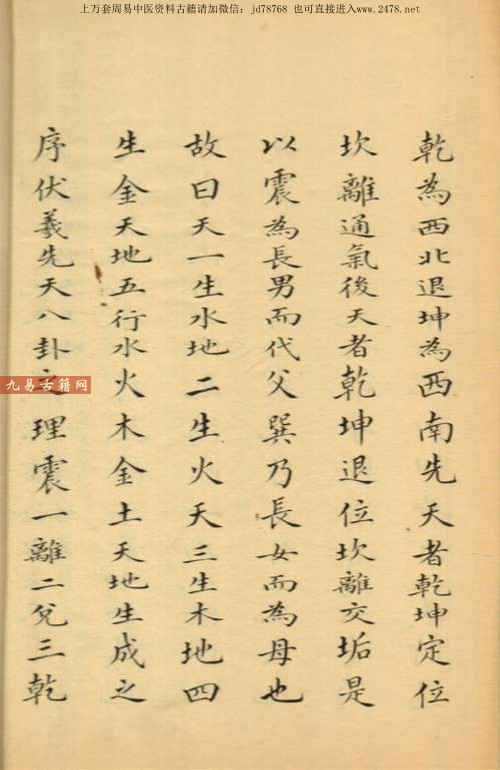 上万套周易中医资料古籍请加微信：jd78768 也可直接进入www.2478.net
乾為西北退坤為西南先天者乾坤定位
坎離通氣後天者乾坤退位坎離交垢是
以震為長男而代父巽乃長女而為母也
故曰天一生水地二生火天三生木地四
生金天地五行水火木金土天地生成之
序伏羲先天八卦之理震一離二兌三乾
九易古籍网